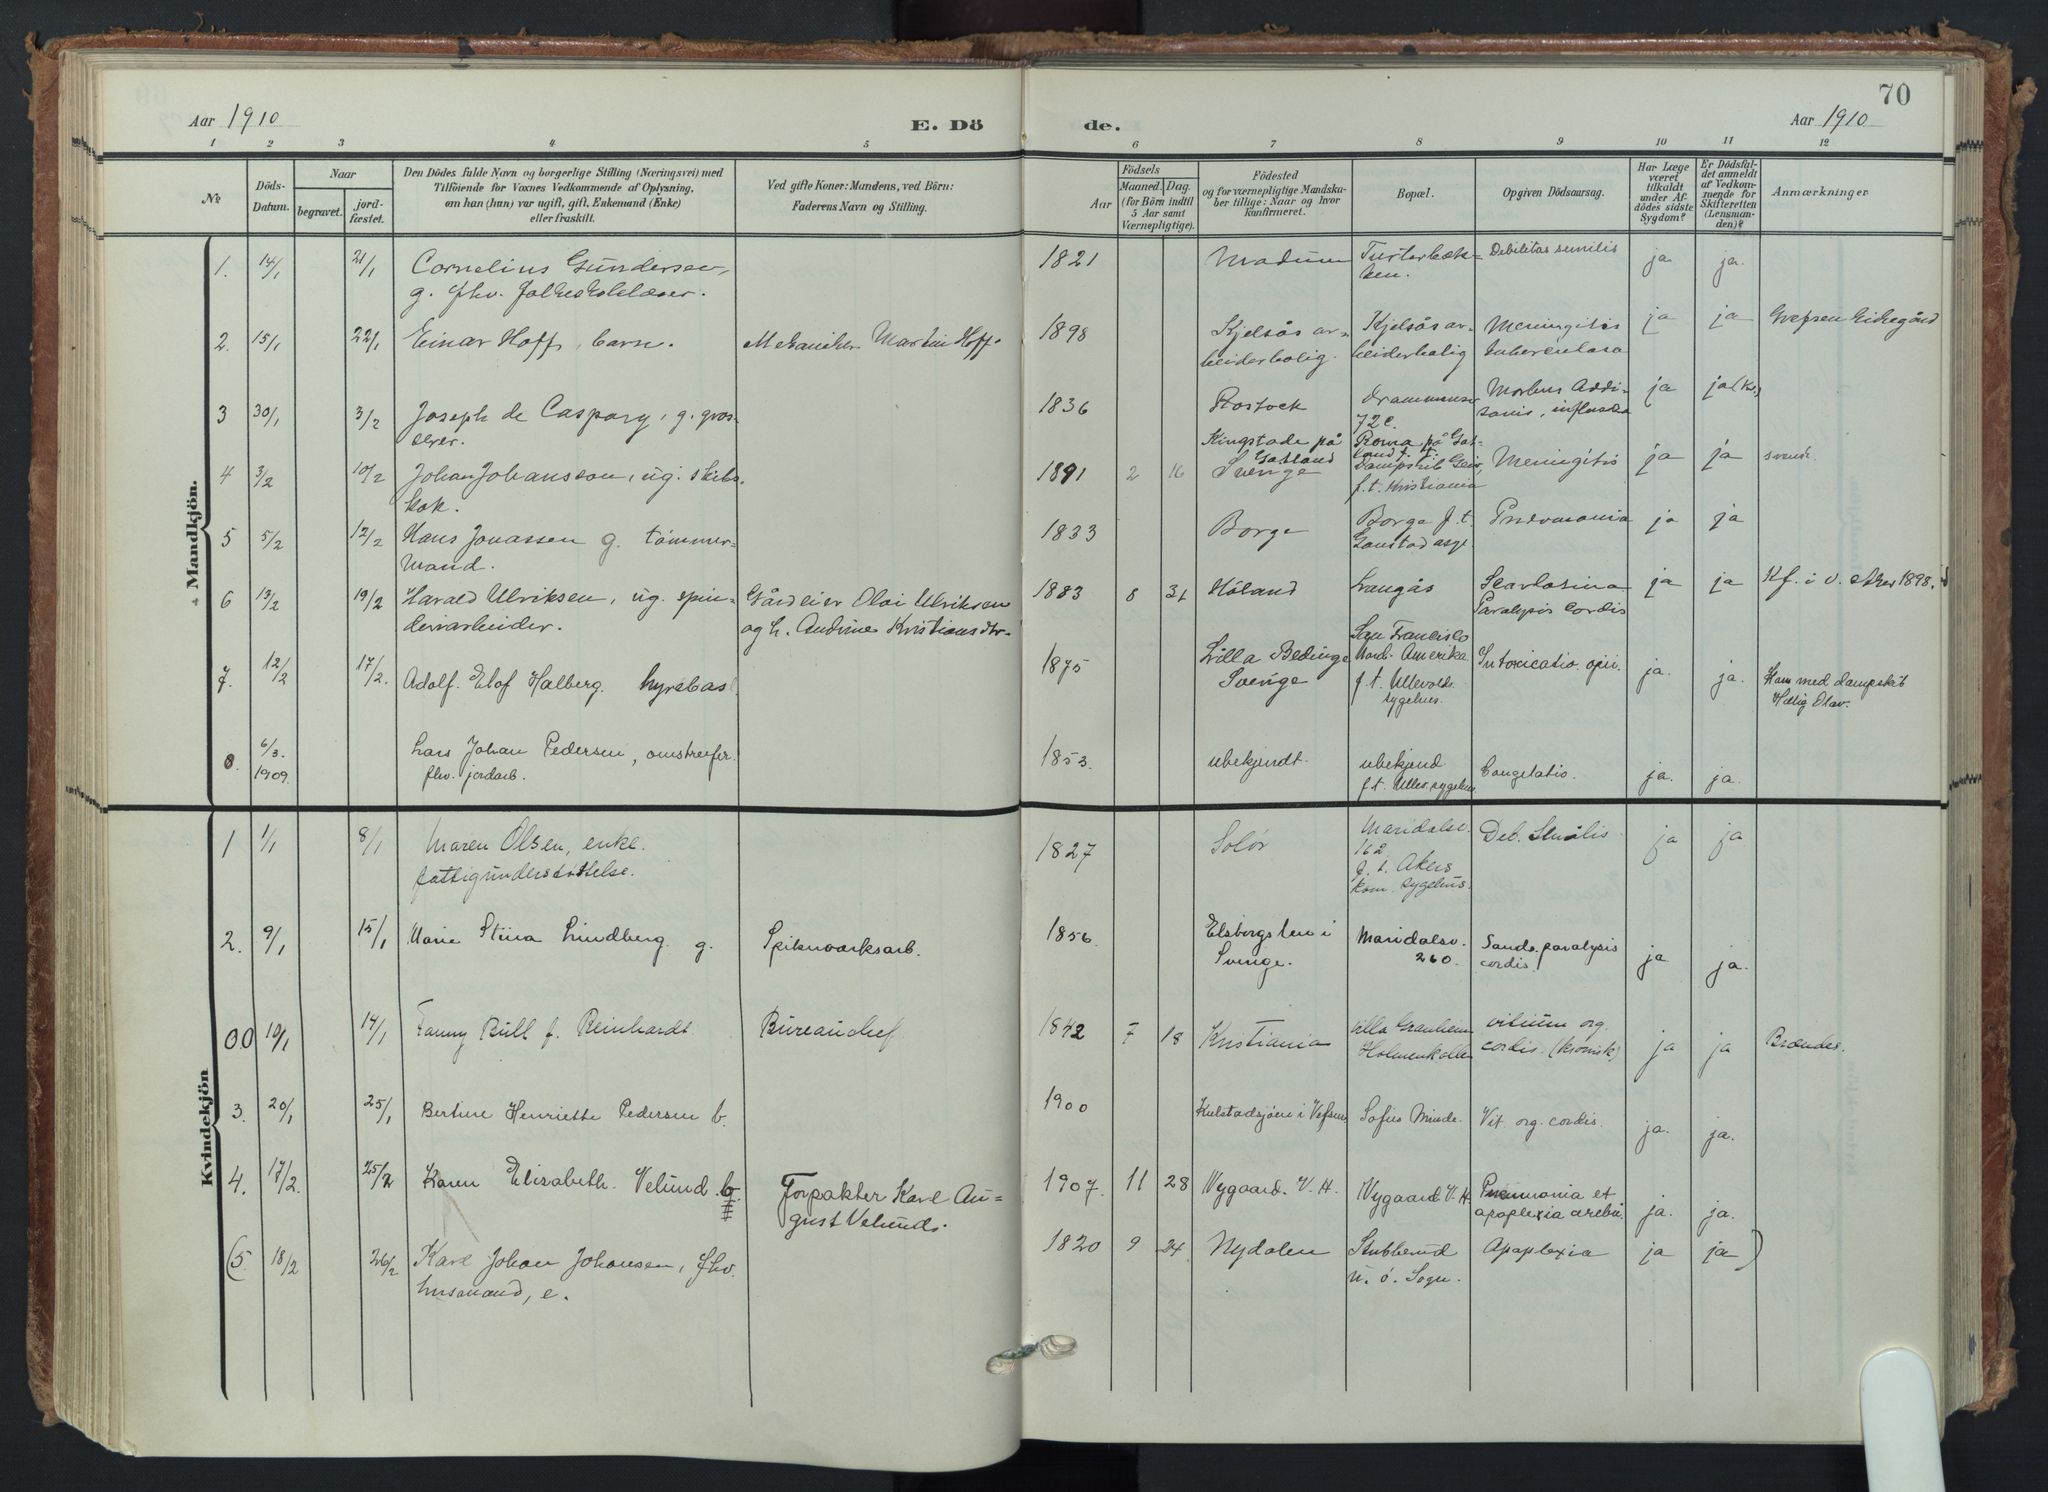 70
Aar 1910
E. Dö
de.
Aar 1910
1 2 3 4 5 6 7 8 9 10 11 12
№
Döds-Datum.
Naar
begravet.
jord-fæstet.
Den Dödes fulde Navn og borgerlige Stilling (Næringsvei) med
Tilföiende for Voxnes Vedkommende af Oplysning,
om han (hun) var ugift, gift, Enkemand (Enke)
eller fraskilt.
Ved gifte Koner: Mandens, ved Börn:
Faderens Navn og Stilling.
Aar
Födsels
Maaned. Dag.
(for Börn indtil
5 Aar samt
Værnepligtige).
Födested
og for værnepligtige Mandska-
ber tillige: Naar og hvor
Konfirmeret.
Bopæl.
Opgiven Dödsaarsag.
Har Læge
været
tilkaldt
under Af-
dödes sidste
Sygdom?
Er Dödsfal-
det anmeldt
af Vedkom-
mende for
Skifteretten
(Lensman-
den)?
Anmærkninger
Mandkjön.
1. 14/1 21/1 Cornelius Gundersen, 1821 Modum Debilitas senilis ja ja.
g. fhv. folkeskolelærer.
2. 15/1 22/1 Einar Hoff, barn. Mekaniker Martin Hoff. 1898 Kjelsås ar- Kjelsås ar- Meningitis ja ja Grefsen Kirkegård
beiderbolig. beiderbolig tuberculosa
3 30/1 3/2 Joseph de Caspary, g. gros- 1836 Rostock Drammensv. Morbus Addi- ja ja
serer. 72c. sonis, influenza
4 3/2 10/2 Johan Johansson, ug. skibs- 1891 2 16 Kingstade på Roma på Got- Meningitis ja ja svensk.
kok. Gotland land f. t.
Sverige Dampskib Geir,
f. t. Kristiania
5 5/2 12/2 Hans Jonassen g. tømmer- 1833 Borge Borge f. t. Pneomonia ja ja
mand. Gaustad asyl
6 13/2 19/2 Harald Ulriksen, ug. spin- Gårdeier Olai Ulriksen 1883 8 31 Höland Langås Scarlasina ja ja Kf. i v. Aker 1898.
deriarbeider. og h. Andrine Kristiansdtr. Paralysis Cordis
7. 12/2 17/2. Adolf. Elof Halberg. hyrebas 1875 Lilla Bedinge San Francisco Intoxicatio opii. ja. ja. Kom med dampskib
Sverige Nord. Amerika Hellig Olav.
f. t. Ullevold
sygehus.
8. 6/3. 1909. Lars Johan Pedersen, omstreifer 1853. ubekjendt. ubekjend Congelatio. ja. ja.
fhv. jordarb. f. t. Ullev. sygehus
Kvindekjön
1 1/1 8/1 Maren Olsen, enke. 1827 Solör Maridalsv. Deb. Senilis ja ja
fattigunderstöttelse. 162
f. t. Akers
kom. sygehus.
2. 9/1 15/1 Marie Stina Lindberg. g. Spikerværksarb. 1856. Elsborgs len i Maridalsv. Sands. paralysis ja ja.
Sverige. 260. cordis
00 10/1 14/1 Fanny Bull f. Reinhardt. Bureauchef 1842 7 18 Kristiania Villa Granheim vitium org. ja ja Brændes.
Holmenkollen cordis. (kronisk)
3. 20/1 25/1 Bertine Henriette Pedersen b. 1900 Kulstadsjöen i Vefsen Sofies Minde. Vit. org. cordis. ja. ja.
4. 17/2. 25/2 Karen Elisabeth. Velund. b. Forpakter Karl Au- 1907. 11 28 Nygaard. V. H. Nygaard V. H. Pneumonia et ja. ja.
gust Velund. apoplexia cerebri
(5. 18/2 26/2 Karl Johan Johansen, fhv. 1820 9 24 Nydalen Stubberud Apoplexia ja ja)
husmand, e. n. ö. Sogn.